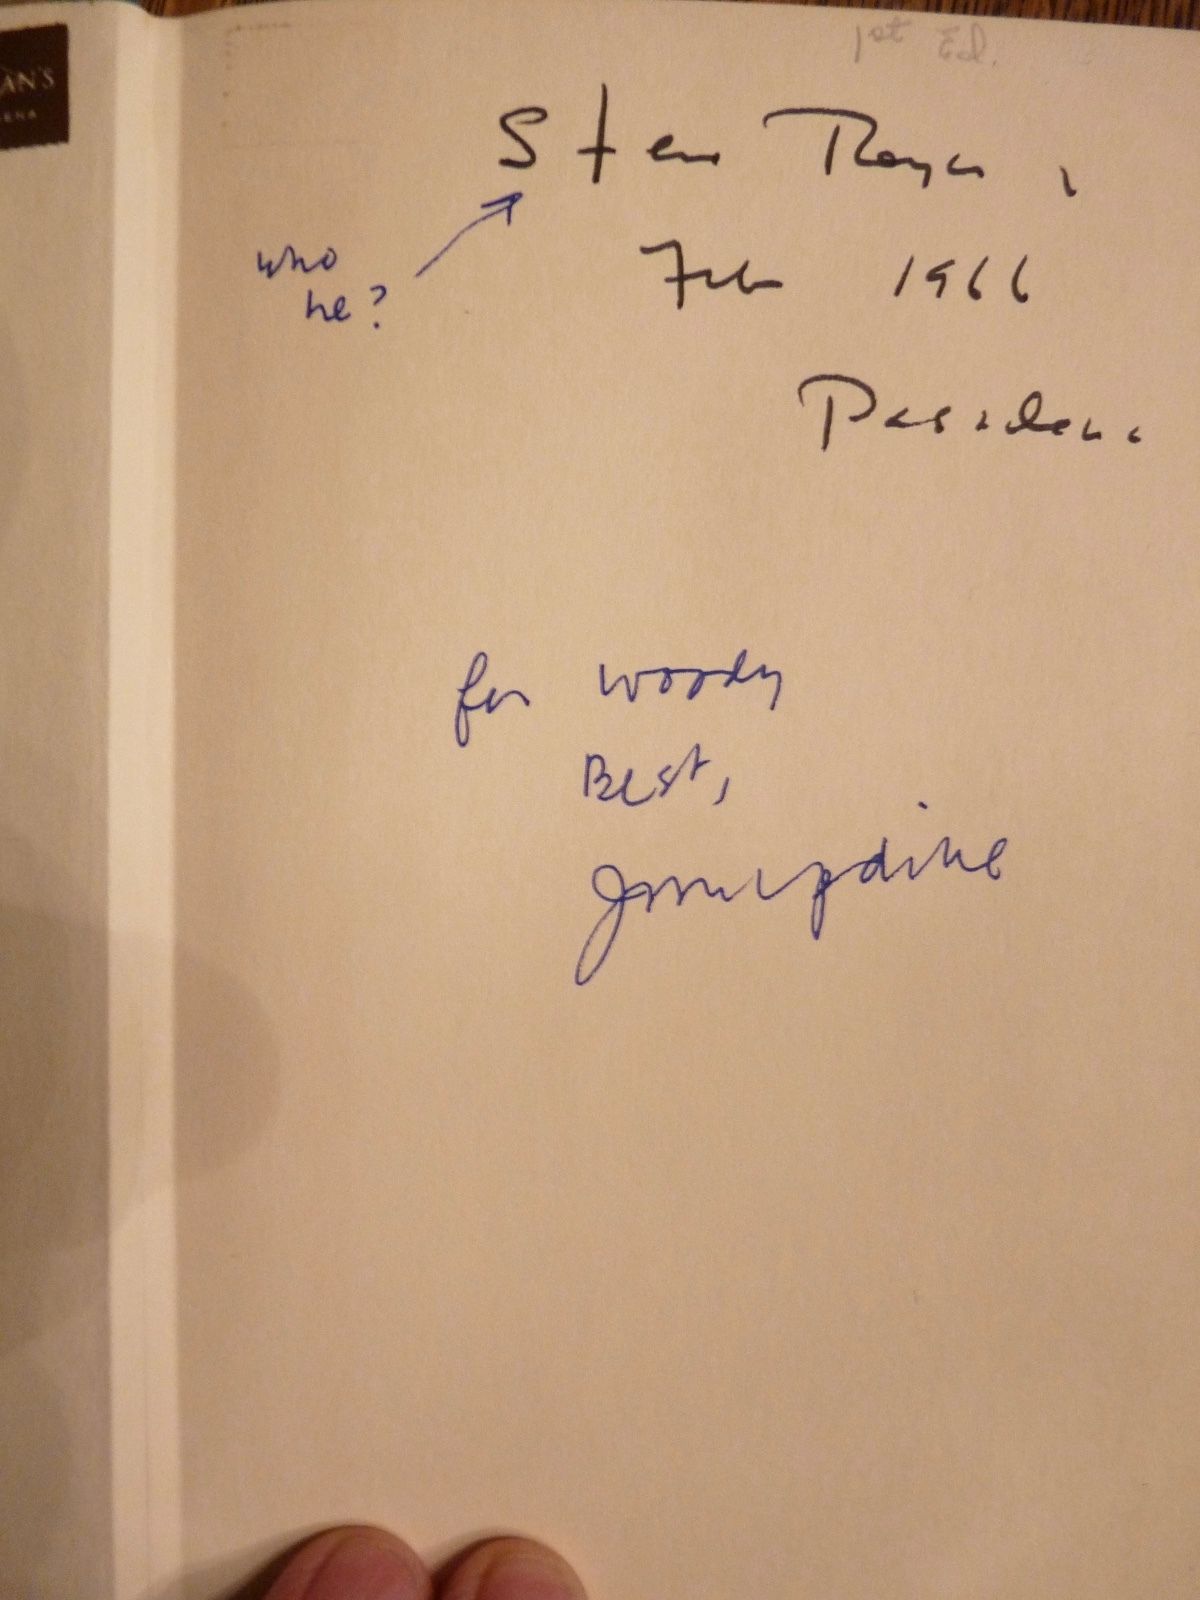 AN'S
ENA
1st Ed.
Steve
Feb 1966
Pasadena
who
he?
for Woody
Best,
John Updike